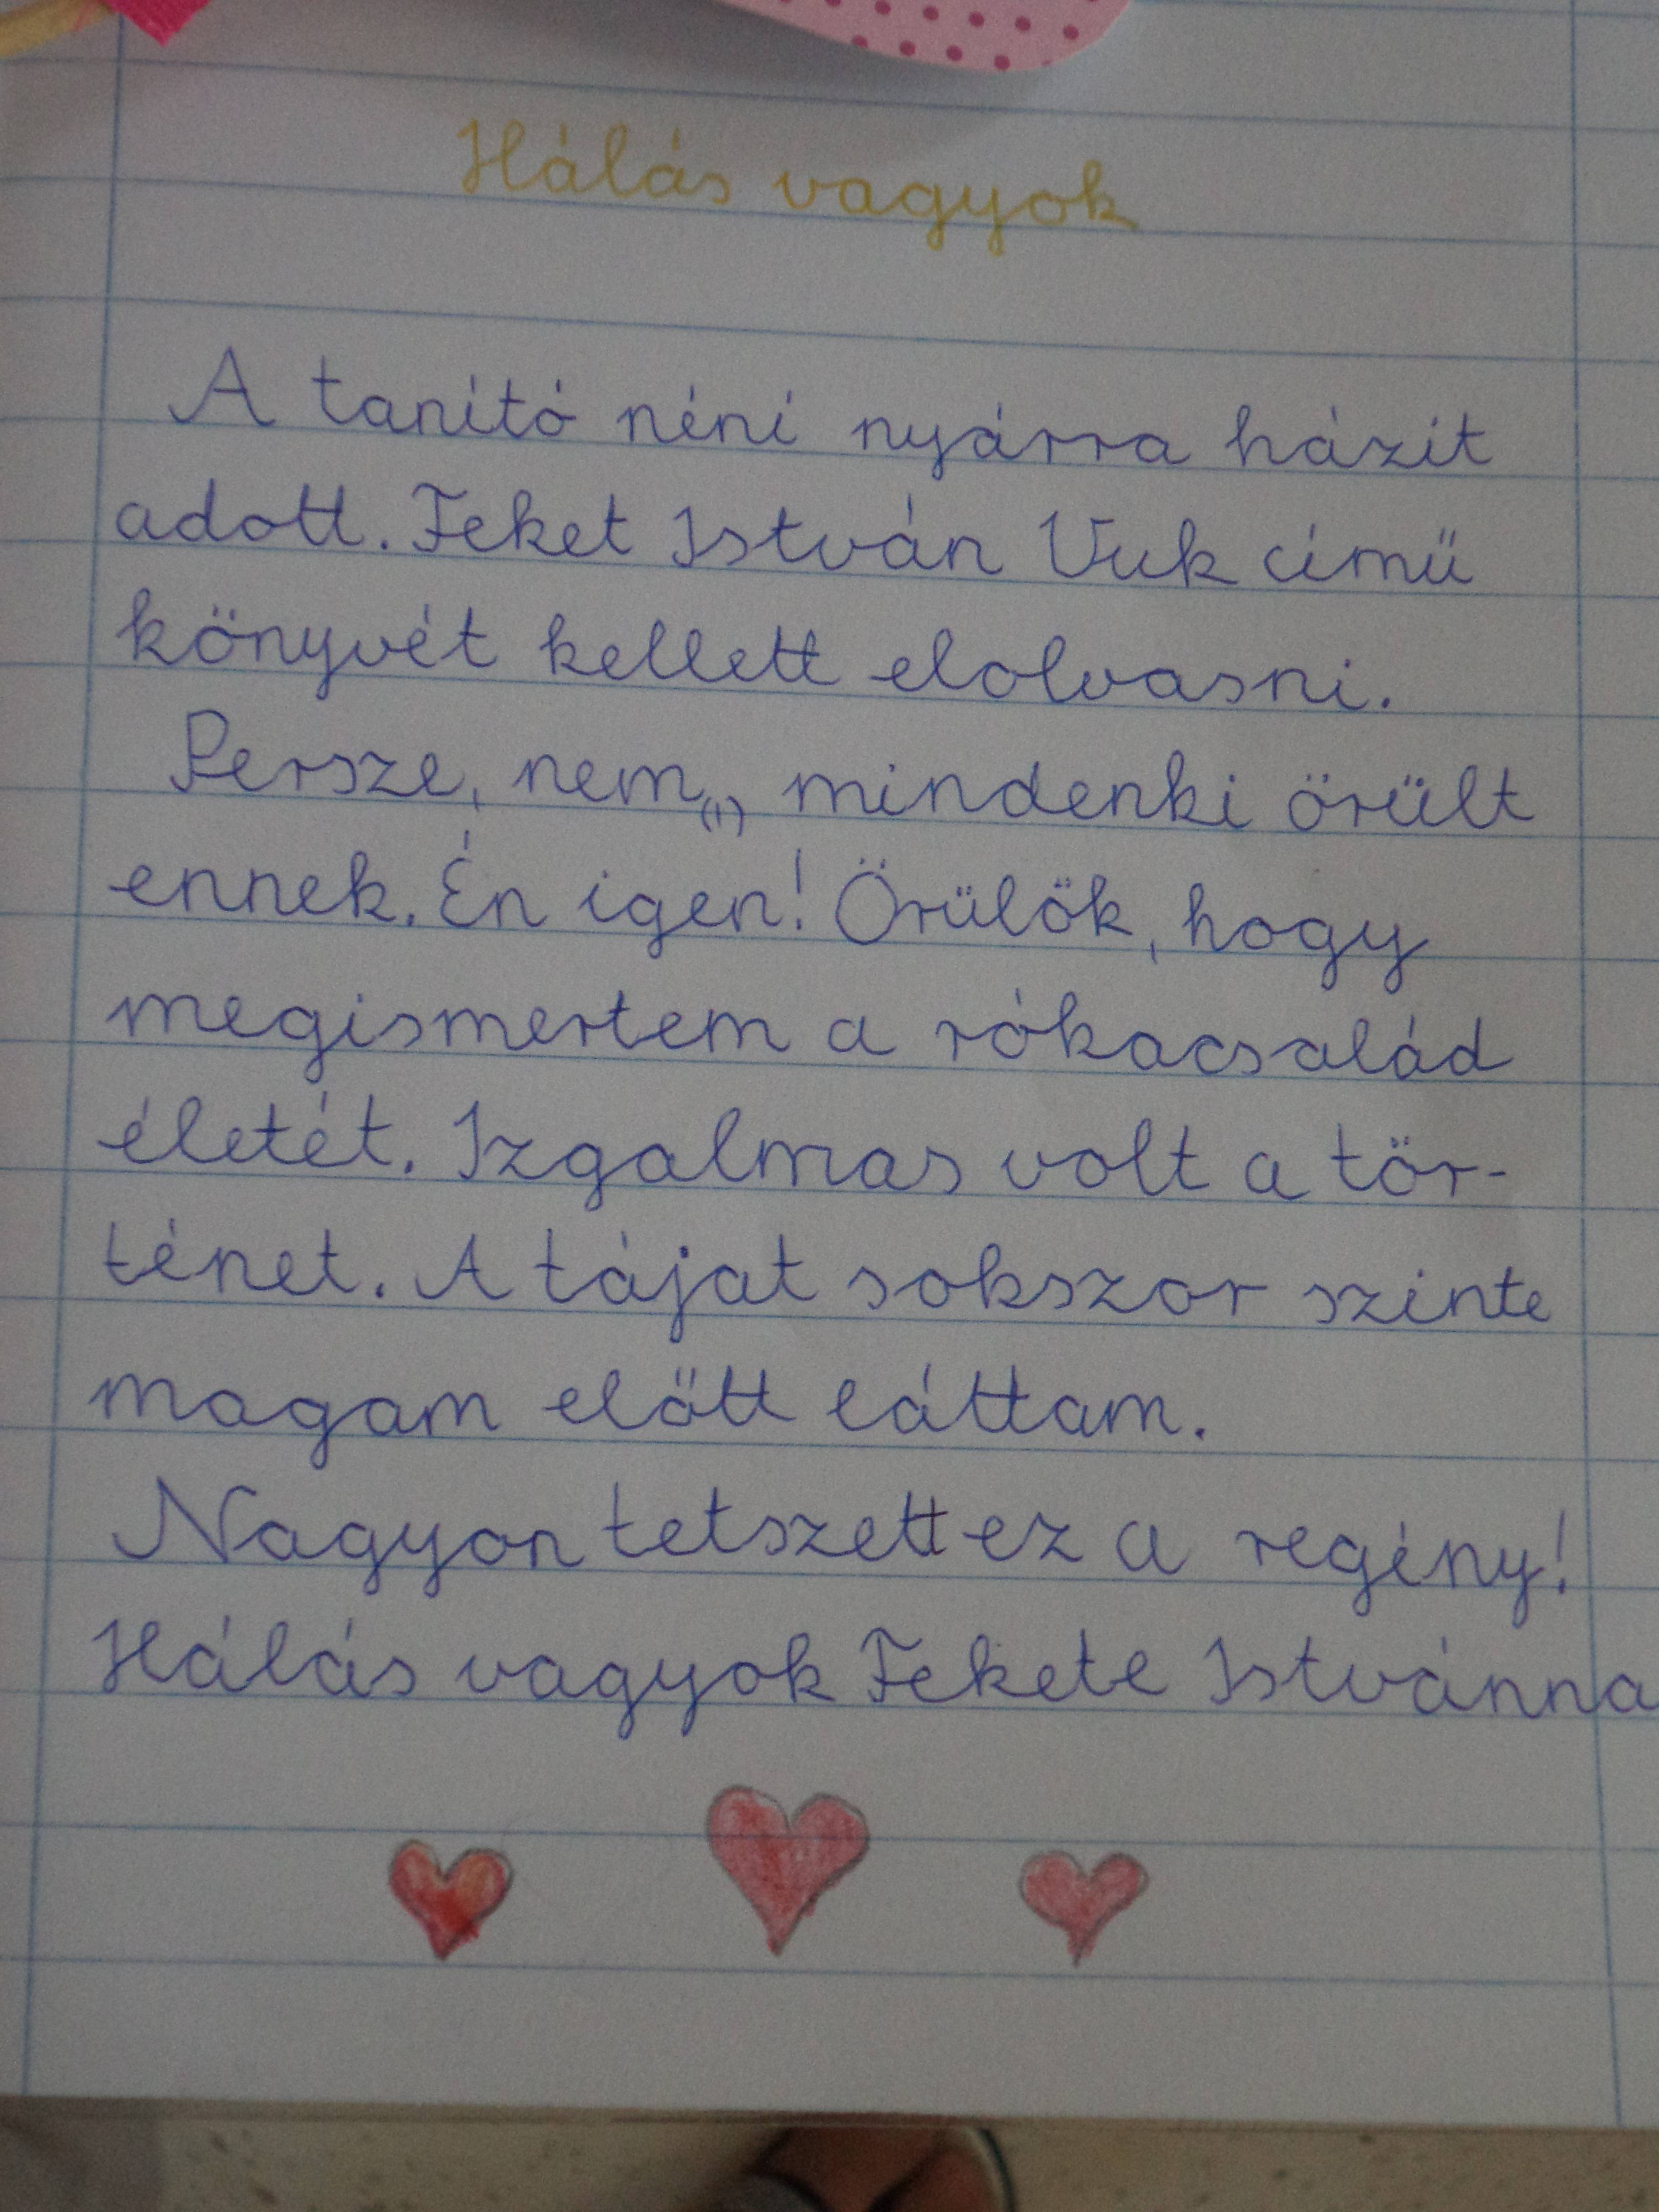 Hálás vagyok
A tanító néni nyárra házit
adott. Feket István Vuk című
könyvét kellett elolvasni.
Persze, nem„(1)” mindenki örült
ennek. Én igen! Örülök, hogy
megismertem a rókacsalád
életét. Izgalmas volt a tör-
ténet. A tájat sokszor szinte
magam előtt láttam.
Nagyon tetszett ez a regény!
Hálás vagyok Fekete Istvánna